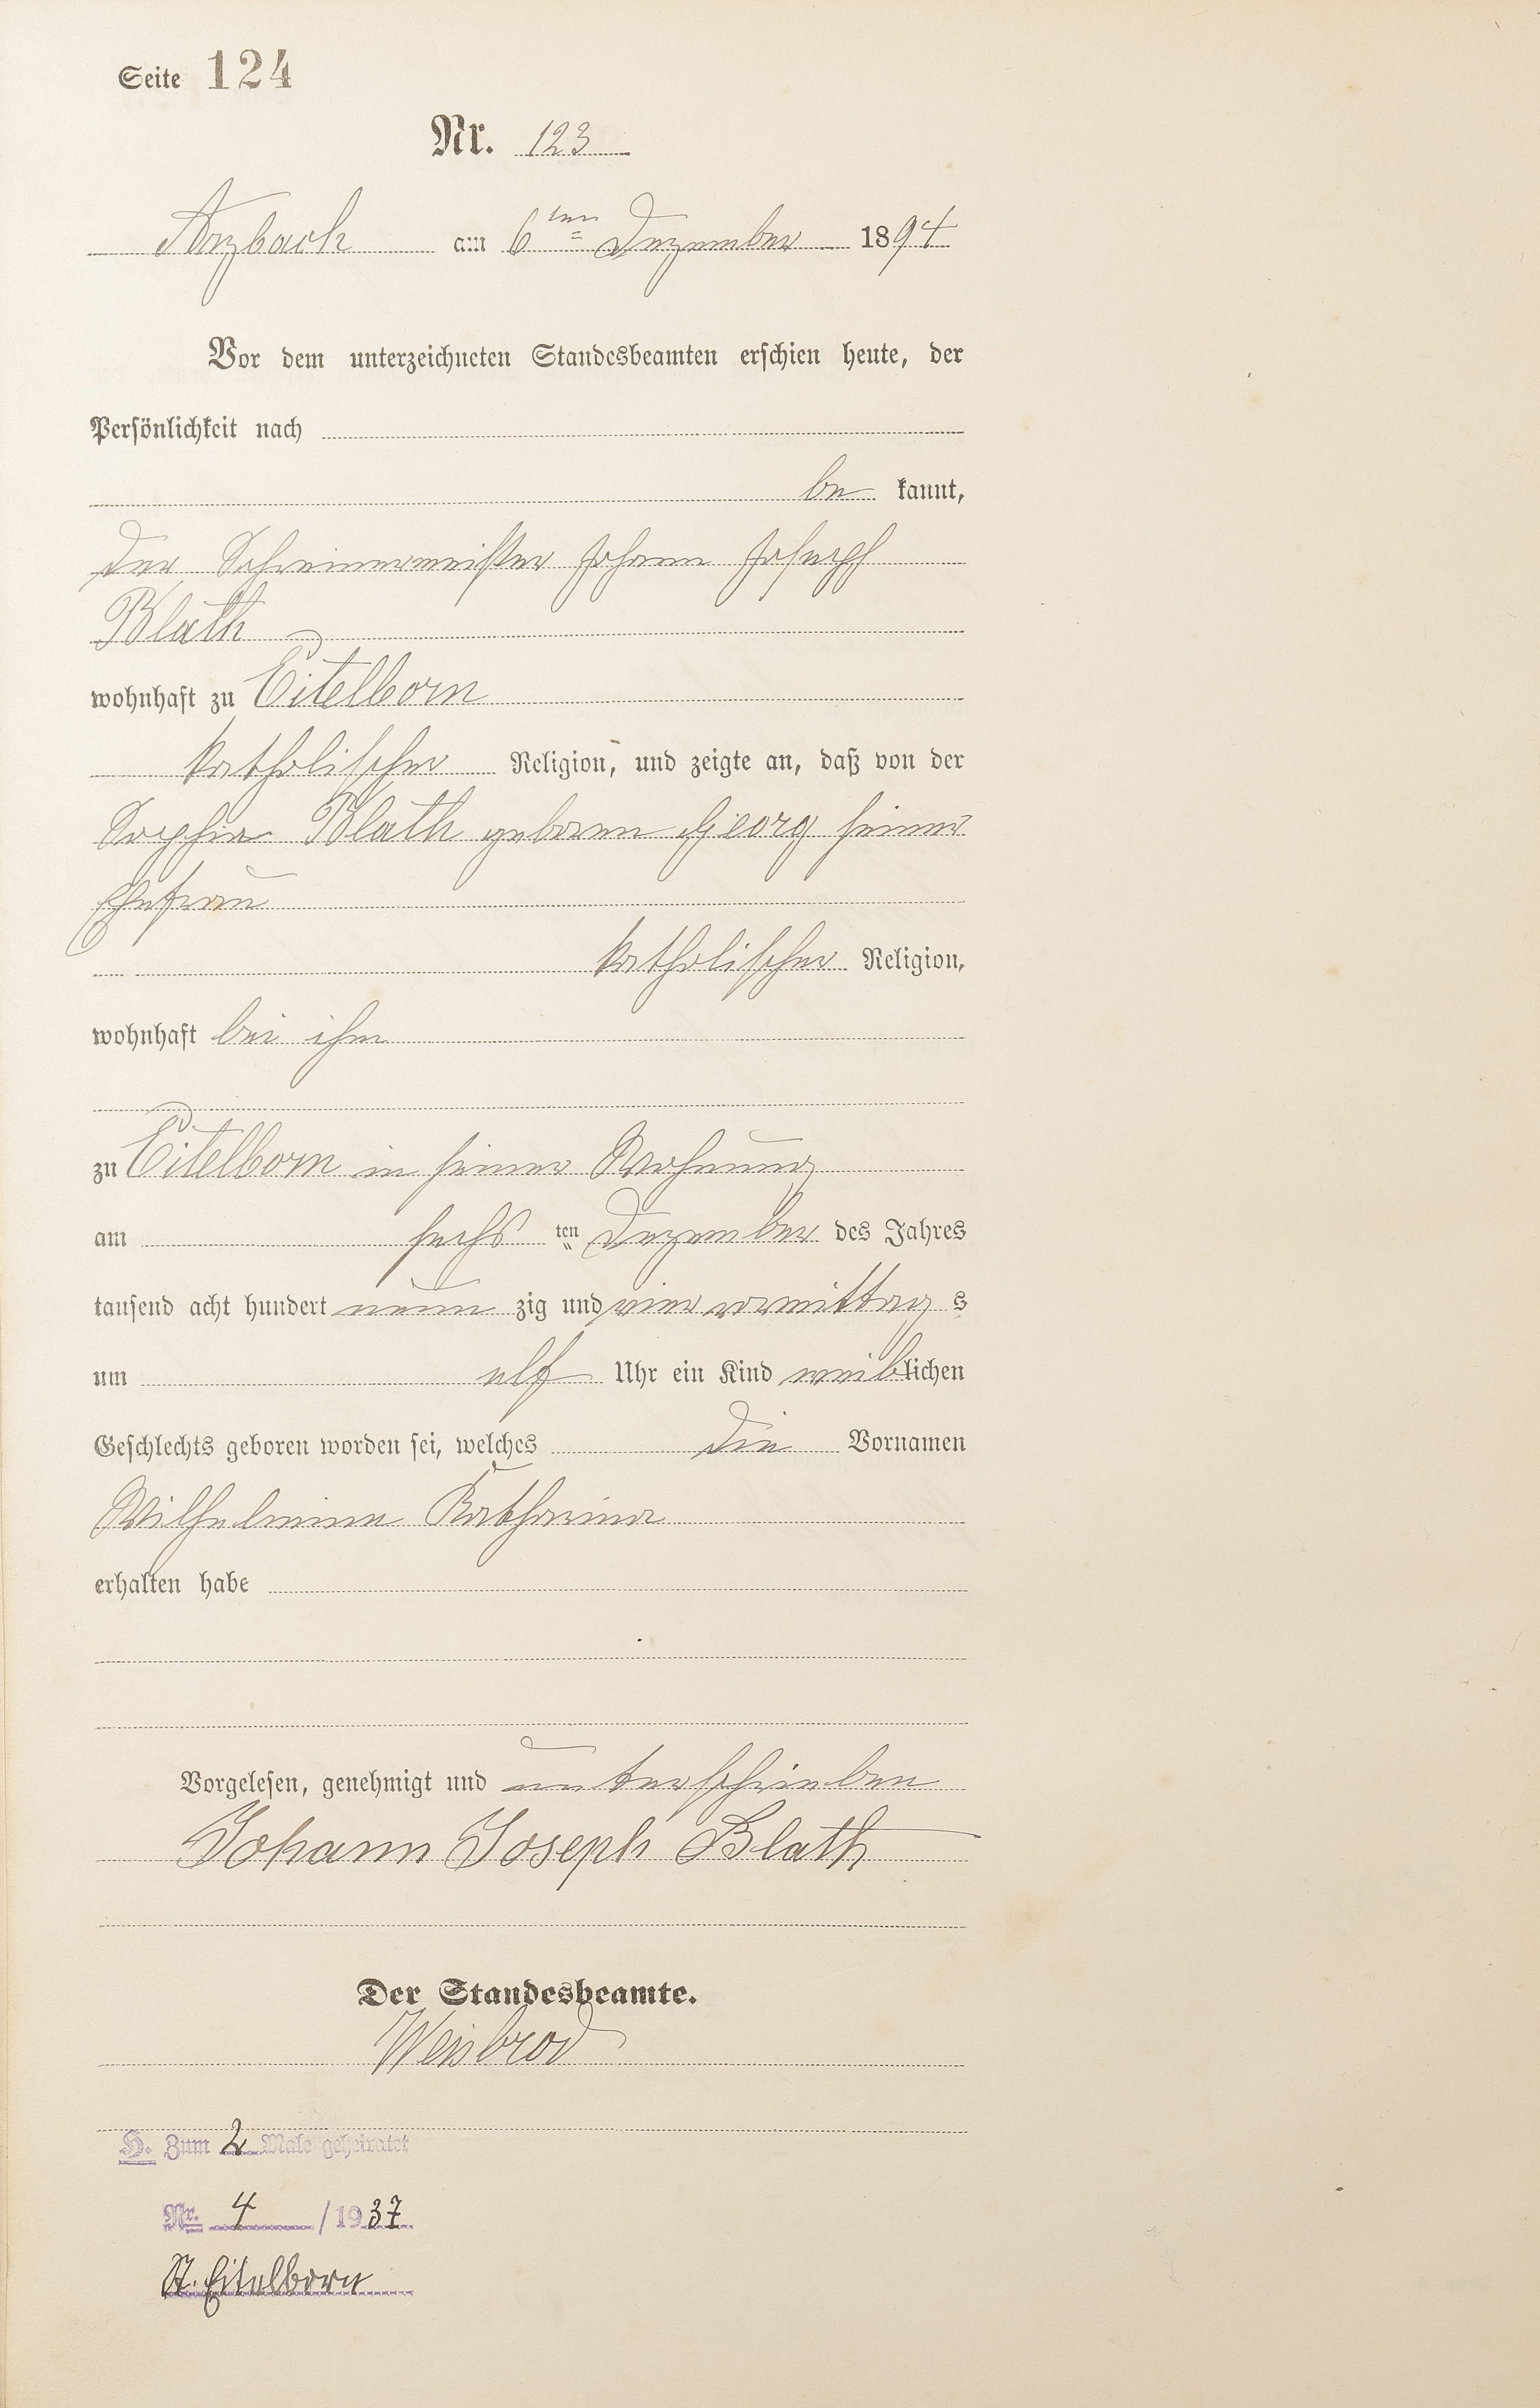 Seite 124
Nr. 123
Arzbach am 6ten Dezember 1894
Vor dem unterzeichneten Standesbeamten erschien heute, der
Persönlichkeit nach
be kannt,
der Schreinermeister Johann Joseph
Blath
wohnhaft zu Eitelborn
katholischer Religion, und zeigte an, daß von der
Sophia Blath geboren Georg seiner
Ehefrau
katholischer Religion,
wohnhaft bei ihm
zu Eitelborn in seiner Wohnung
am sechs ten Dezember des Jahres
tausend acht hundert neun zig und vier vormittag s
um elf Uhr ein Kind weiblichen
Geschlechts geboren worden sei, welches die Vornamen
Wilhelmine Katharina
erhalten habe
Vorgelesen, genehmigt und unterschrieben
Johann Joseph Blath
Der Standesbeamte.
Weisbrod
H. Zum 2 Male geheiratet
Nr. 4 /1937
St. Eitelborn